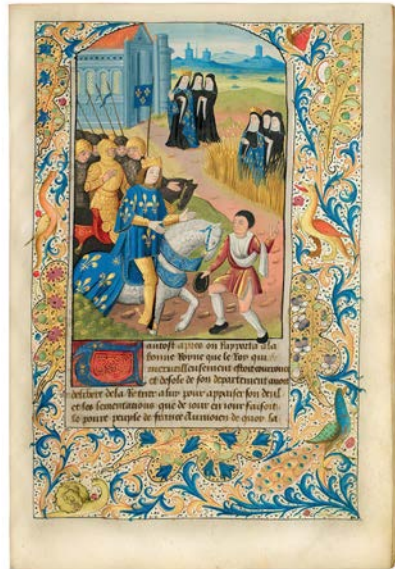 antost apres on rapporta a la
bonne Royne que le Roy qui
merueilleusement estoit courrouce
et desole de son departement auoit
delibere de la Retirer a luy pour appaiser son deul
et les lamentations que de iour en iour faisoit
le poure peuple de france Au moien de quoy la